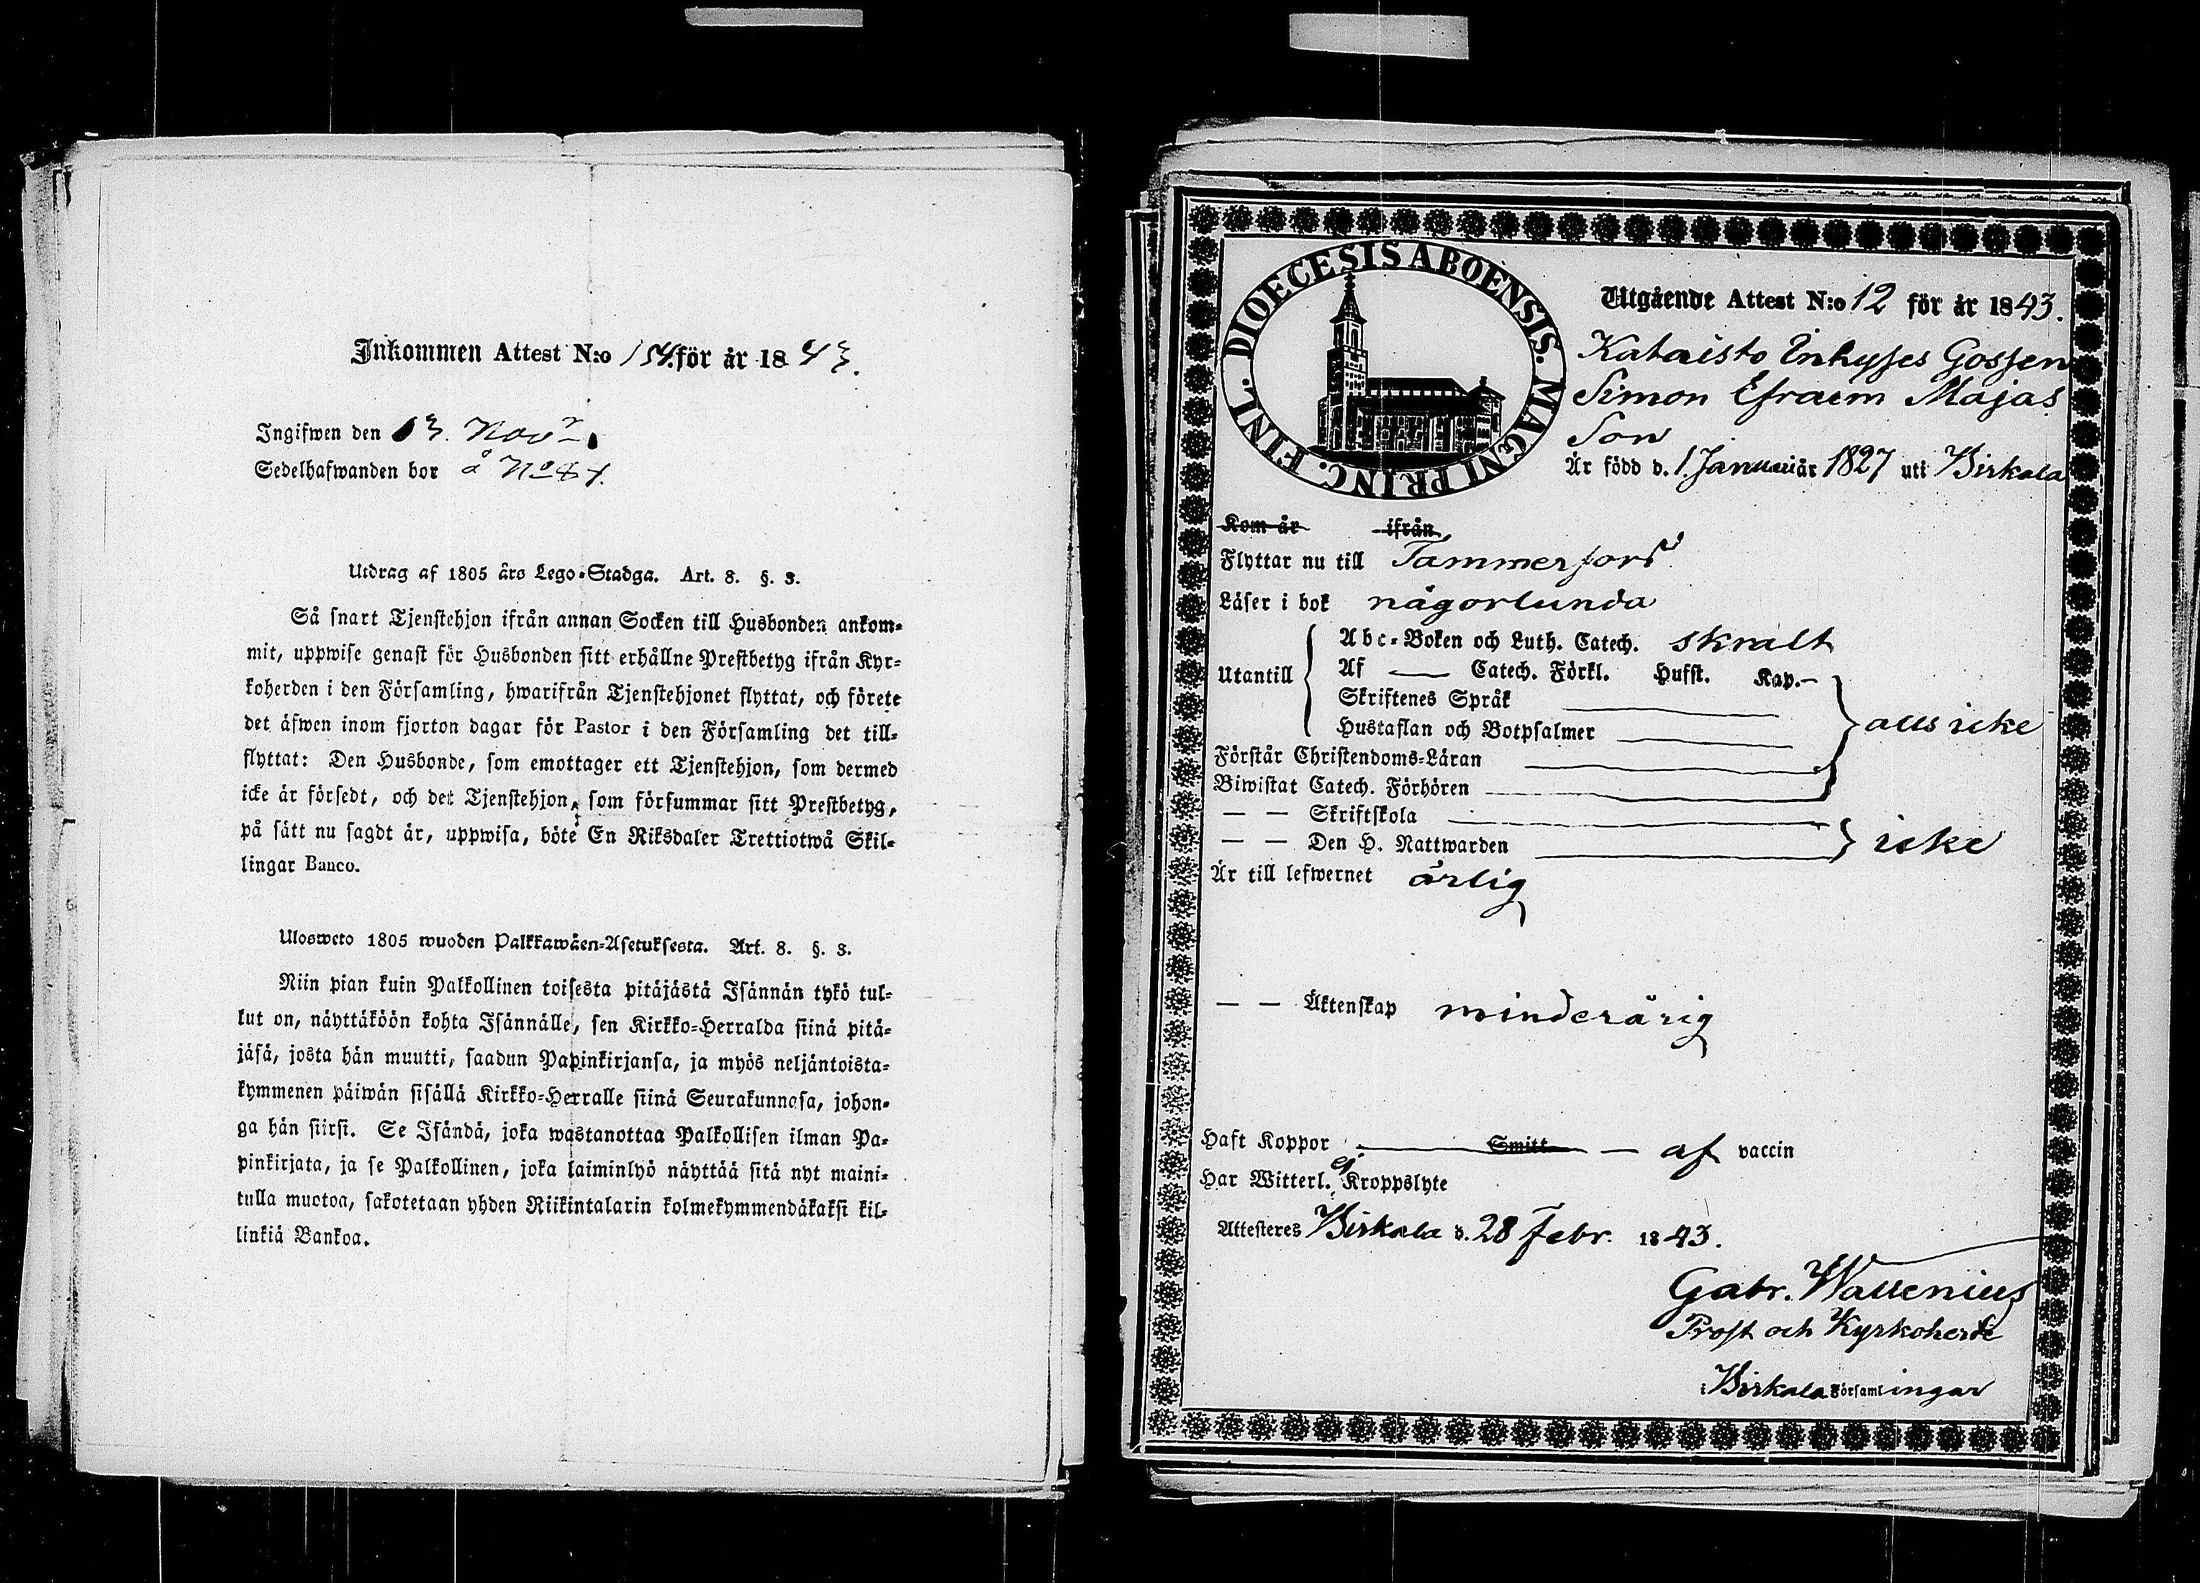 Inkommen Attest N:o 154. för år 1843.
Ingifwen den 13. Novr
Sedelhafwanden bor å No 81.
Utdrag af 1805 års Lego-Stadga. Art. 8. §. 3.
Så snart Tjenstehjon ifrån annan Socken till Husbonden ankom-
mit, uppwise genast för Husbonden sitt erhållne Prestbetyg ifrån Kyr-
koherden i den Församling, hwarifrån Tjenstehjonet flyttat, och förete
det äfwen inom fjorton dagar för Pastor i den Församling det till-
flyttat: Den Husbonde, som emottager ett Tjenstehjon, som dermed
icke är försedt, och det Tjenstehjon, som försummar sitt Prestbetyg,
på sätt nu sagdt är, uppwisa, böte En Riksdaler Trettiotwå Skil-
lingar Banco.
Ulosweto 1805 wuoden Palkkawäen-Asetuksesta. Art. 8. §. 3.
Niin pian kuin Palkollinen toisesta pitäjästä Isännän tykö tul-
lut on, näyttäköön kohta Isännälle, sen Kirkko-Herralda siinä pitä-
jäsä, josta hän muutti, saadun Papinkirjansa, ja myös neljäntoista-
kymmenen päiwän sisällä Kirkko-Herralle siinä Seurakunnasa, johon-
ga hän siirsi. Se Isändä, joka wastanottaa Palkollisen ilman Pa-
pinkirjata, ja se Palkollinen, joka laiminlyö näyttää sitä nyt maini-
tulla muotoa, sakotetaan yhden Riikintalarin kolmekymmendäkaksi kil-
linkiä Bankoa.
DIOECESIS ABOENSIS. MAGNI PRINC. FINL.
Utgående Attest N:o 12 för år 1843.
Kataisto Inhyses Gossen
Simon Efraim Majas
Son
Är född d. 1. Januari år 1827 uti Birkala
Kom år ifrån
Flyttar nu till Tammerfors
Läser i bok någorlunda
Utantill
Abc-Boken och Luth. Catech. skralt
Af — Catech. Förkl. Husst. Kap. —
Skriftenes Språk
Hustaflan och Botpsalmer
alls icke
Förstår Christendoms-Läran
Biwistat Catech. Förhören
— — Skriftskola
— — Den H. Nattwarden
icke
Är till lefwernet ärlig
— — Äktenskap minderårig
Haft Koppor — Smitt — af vaccin
Har Witterl. ej Kroppslyte
Attesteres Birkala d. 28 Febr. 1843.
Gabr. Wallenius
Prost och Kyrkoherde
i Birkala Församlingar